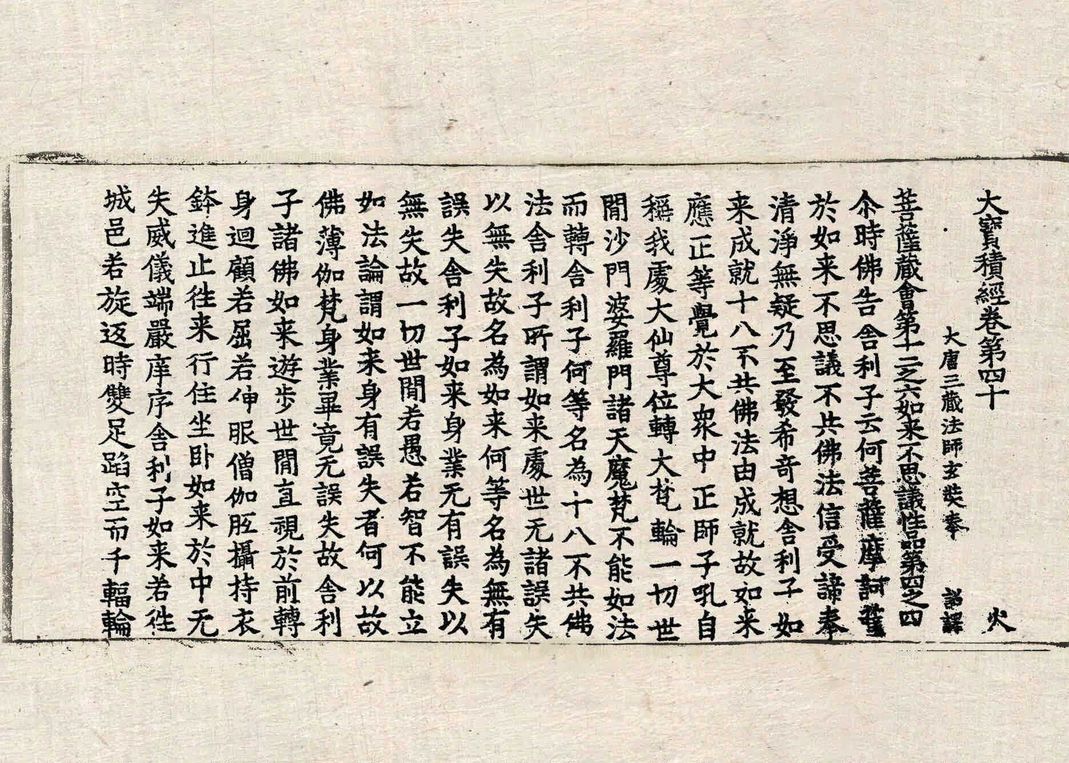 大寶積經卷第四十 火
大唐三藏法師玄奘奉 詔譯
菩薩藏會第十二之六如来不思議性品第四之四
尒時佛告舎利子云何菩薩摩訶薩
於如来不思議不共佛法信受諦奉
清淨無疑乃至發希奇想舎利子如
来成就十八不共佛法由成就故如来
應正等覺於大衆中正師子吼自
稱我處大仙尊位轉大梵輪一切世
閒沙門婆羅門諸天魔梵不能如法
而轉舎利子何等名為十八不共佛
法舎利子所謂如来處世无諸誤失
以無失故名為如来何等名為無有
誤失舎利子如来身業无有誤失以
無失故一切世閒若愚若智不能立
如法論謂如来身有誤失者何以故
佛薄伽梵身業畢竟无誤失故舎利
子諸佛如来遊步世閒直視於前轉
身迴顧若屈若伸服僧伽胝攝持衣
鉢進止往来行住坐卧如来於中无
失威儀端嚴庠序舎利子如来若往
城邑若旋返時雙足蹈空而千輻輪